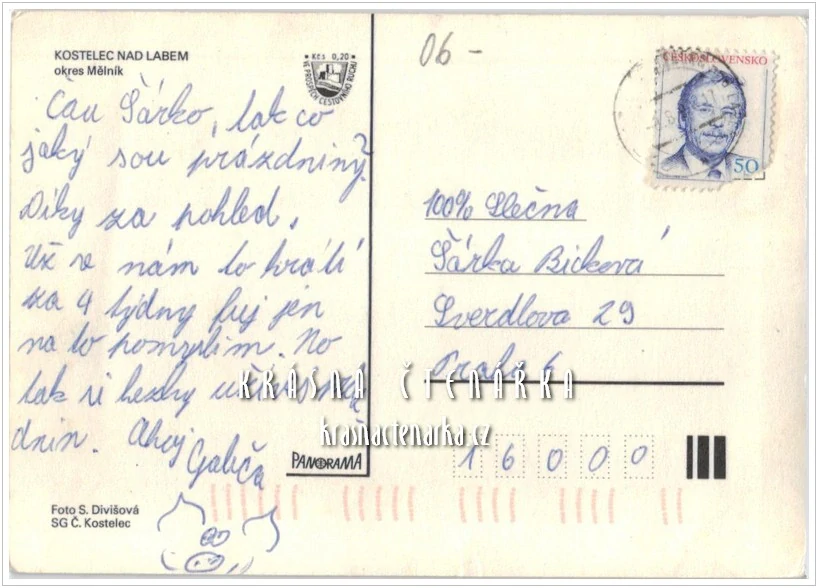 KOSTELEC NAD LABEM
okres Mělník
Kčs 0,20
VE PROSPĚCH CESTOVNÍHO RUCHU
06 -
ČESKOSLOVENSKO
50
Čau Šárko, tak co
jaký sou prázdniny?
Díky za pohled,
Už se nám to krátí
za 4 týdny fuj jen
na to pomyslim. No
tak si hezky
dnin. Ahoj
Galiča
100% Slečna
Šárka Bicková
Sverdlova 29
Praha 6
KRÁSNÁ ČTENÁŘKA
krasnactenarka.cz
PANORAMA
16000
Foto S. Divišová
SG Č. Kostelec